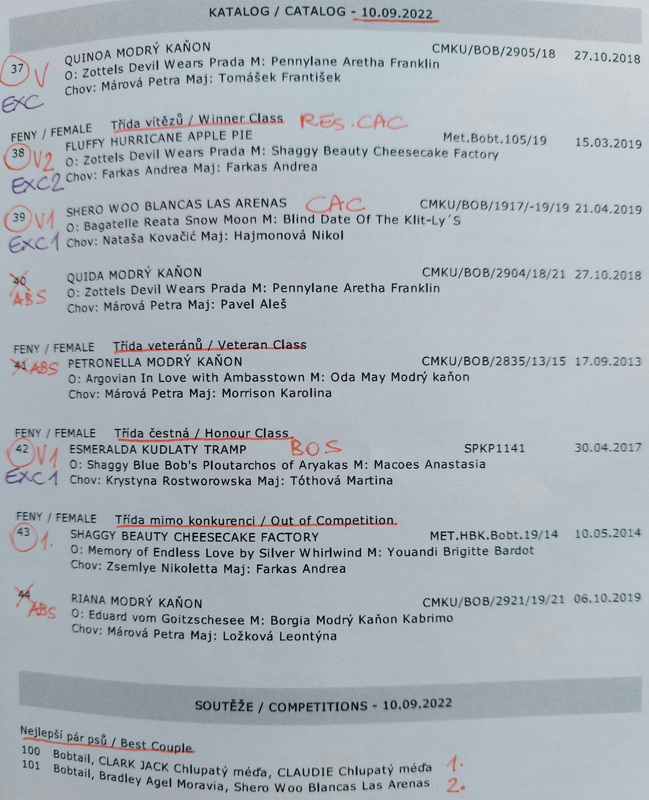 KATALOG / CATALOG - 10.09.2022
37 V QUINOA MODRÝ KAŇON CMKU/BOB/2905/18 27.10.2018
O: Zottels Devil Wears Prada M: Pennylane Aretha Franklin
EXC Chov: Márová Petra Maj: Tomášek František
FENY / FEMALE Třída vítězů / Winner Class RES. CAC
38 V2 FLUFFY HURRICANE APPLE PIE Met.Bobt.105/19 15.03.2019
O: Zottels Devil Wears Prada M: Shaggy Beauty Cheesecake Factory
EXC2 Chov: Farkas Andrea Maj: Farkas Andrea
39 V1 SHERO WOO BLANCAS LAS ARENAS CAC CMKU/BOB/1917/-19/19 21.04.2019
O: Bagatelle Reata Snow Moon M: Blind Date Of The Klit-Ly´S
EXC1 Chov: Nataša Kovačić Maj: Hajmonová Nikol
40 QUIDA MODRÝ KAŇON CMKU/BOB/2904/18/21 27.10.2018
ABS O: Zottels Devil Wears Prada M: Pennylane Aretha Franklin
Chov: Márová Petra Maj: Pavel Aleš
FENY / FEMALE Třída veteránů / Veteran Class
41 ABS PETRONELLA MODRÝ KAŇON CMKU/BOB/2835/13/15 17.09.2013
O: Argovian In Love with Ambasstown M: Oda May Modrý kaňon
Chov: Márová Petra Maj: Morrison Karolina
FENY / FEMALE Třída čestná / Honour Class
42 V1 ESMERALDA KUDLATY TRAMP BOS SPKP1141 30.04.2017
O: Shaggy Blue Bob's Ploutarchos of Aryakas M: Macoes Anastasia
EXC1 Chov: Krystyna Rostworowska Maj: Tóthová Martina
FENY / FEMALE Třída mimo konkurenci / Out of Competition
43 1. SHAGGY BEAUTY CHEESECAKE FACTORY MET.HBK.Bobt.19/14 10.05.2014
O: Memory of Endless Love by Silver Whirlwind M: Youandi Brigitte Bardot
Chov: Zsemlye Nikoletta Maj: Farkas Andrea
44 ABS RIANA MODRÝ KAŇON CMKU/BOB/2921/19/21 06.10.2019
O: Eduard vom Goitzschesee M: Borgia Modrý Kaňon Kabrimo
Chov: Márová Petra Maj: Ložková Leontýna
SOUTĚŽE / COMPETITIONS - 10.09.2022
Nejlepší pár psů / Best Couple
100 Bobtail, CLARK JACK Chlupatý méďa, CLAUDIE Chlupatý méďa 1.
101 Bobtail, Bradley Agel Moravia, Shero Woo Blancas Las Arenas 2.